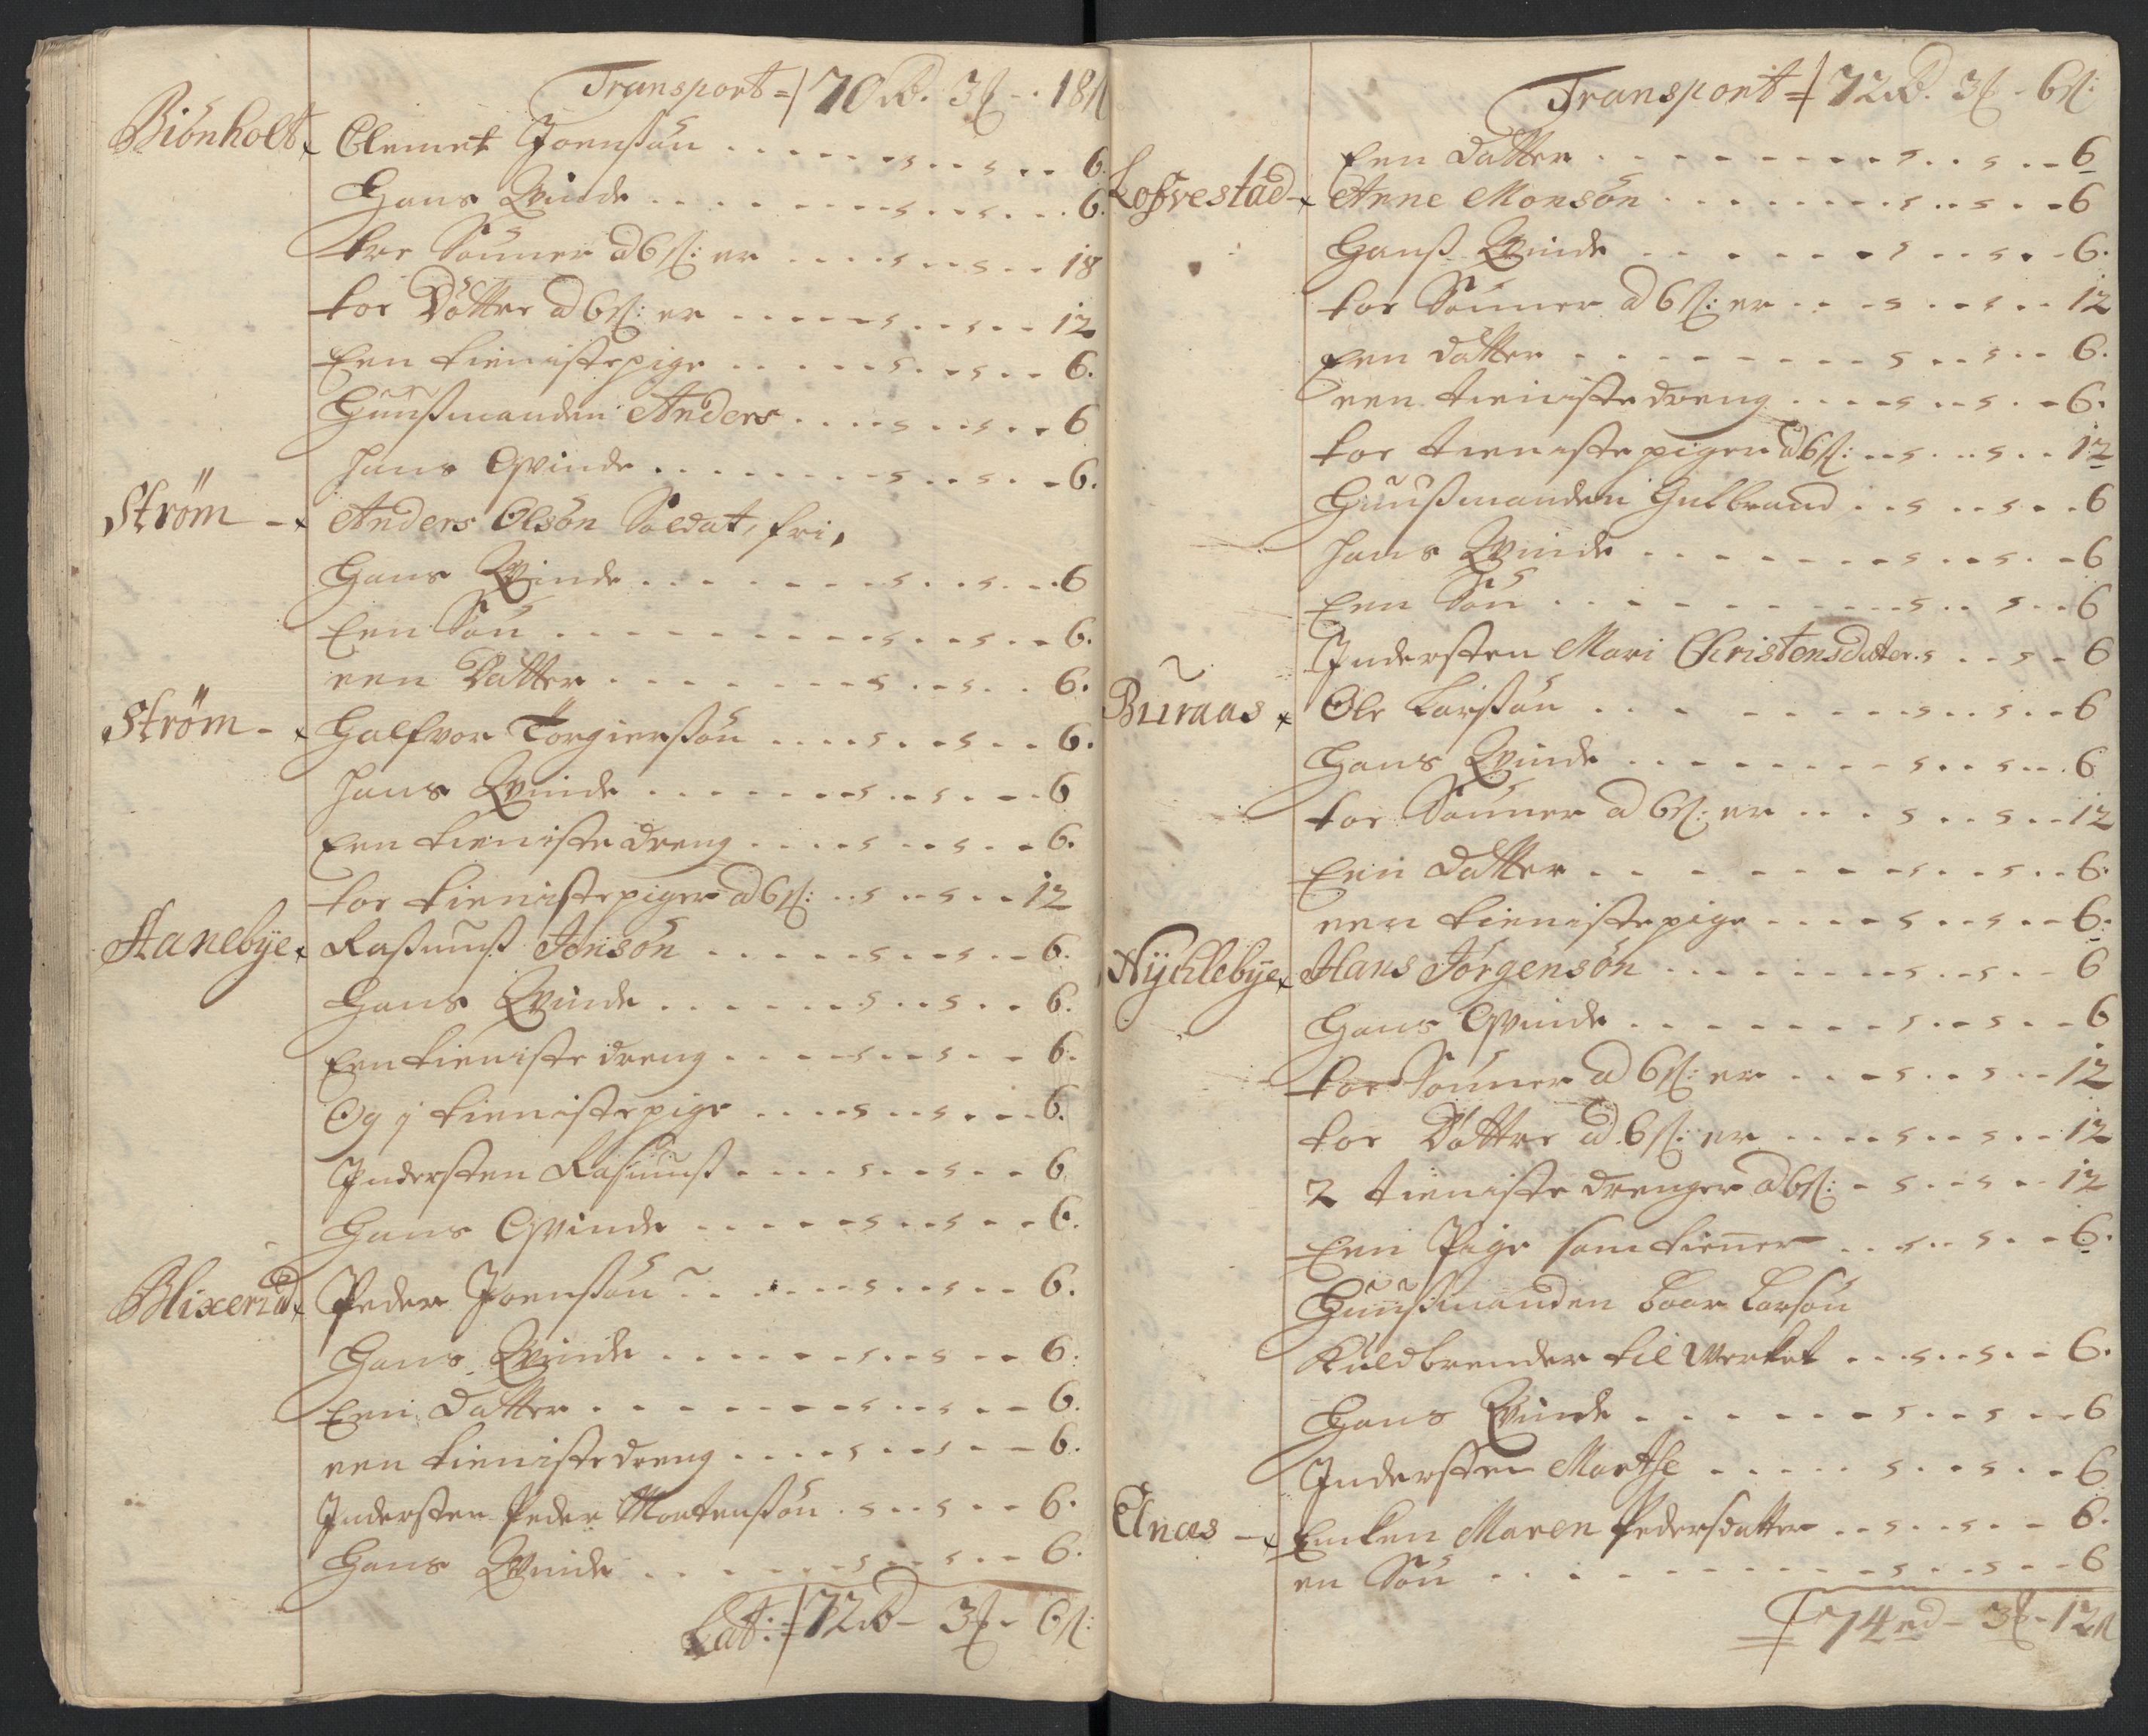 Transport = 70 rd. 3 ß - 18 ſl
Biönholt Clement Joenßön 6.
Hans Qvinde 6.
tre Sönner ad 6 ſl: er 18
toe Döttre ad 6 ſl: er 12
Een tienistepige 6.
Huußmanden Anders 6
hans Qvinde 6.
Strøm - Anders Olsön Soldat, fri,
Hans Qvinde 6
Een Sön 6.
een Datter 6.
Strøm - Halfvor Torgierßön 6.
hans Qvinde 6
Een tieniste dreng 6.
toe tienistepiger ad 6 ſl: 12
Hanebÿe Raßmuß Jonsön 6.
Hans Qvinde 6.
Een tieniste dreng 6.
Og j tienistepige 6.
Indersten Rasmuß 6
Hans Qvinde 6.
Blixerud Peder Joenßön 6.
Hans Qvinde 6.
Een Datter 6.
een tienistedreng 6.
Indersten Peder Mortenßön 6.
Hans Qvinde 6.
Lat: = 72 rd - 3 ß - 6 ſl:
Transport = 72 rd. 3 ß - 6 ſl:
Een Datter 6
Lofvestad - Arne Monsön 6
Hanß Qvinde 6.
toe Sönner ad 6 ſl: er 12
Een datter 6.
een tieniste dreng 6.
toe tieniste piger ad 6 ſl: 12
Huußmanden Gulbrand 6
hans Qvinde 6
Een Sön 6
Indersten Mari Christensdater 6
Buraas Ole Larßön 6
Hans Qvinde 6
toe Sönner ad 6 ſl: er 12
Een Datter 6.
een tienistepige 6.
Nÿchlebÿe Hans Jörgensön 6
Hans Qvinde 6
toe Sönner ad 6 ſl: er 12
toe Döttre ad 6 ſl: er 12
2 tieniste drenger ad 6 ſl: 12
Een Pige som tiener 6.
Huußmanden Larsön
Kuldbrender til Werket 6.
Hans Qvinde 6
Indersten Marthe 6
Elnæs - Enken Maren Pedersdatter 6.
en Sön 6
74 rd - 3 ß - 12 ſl